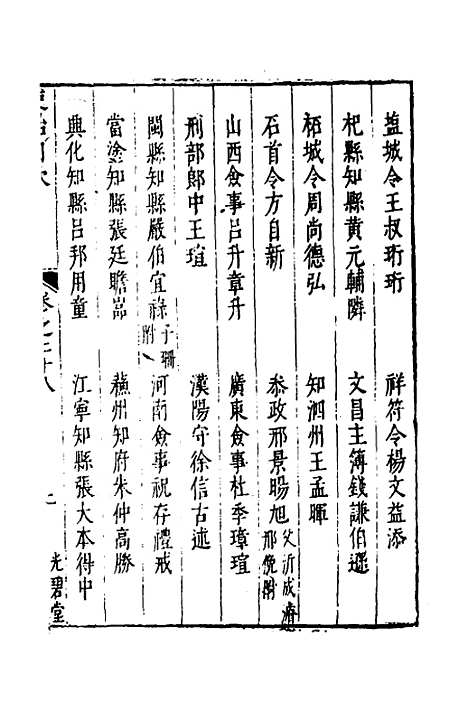 塩城令王叔珩珩　祥符令楊文益添
杞縣知縣黃元輔隣　文昌主簿錢謙伯遜
柘城令周尚德弘　知泗州王孟暉
石首令方自新　叅政邢景暘旭父沂成濟邢俛附
山西僉事吕升章升　廣東僉事杜季璋瑄
刑部郎中王瑄　漢陽守徐信古述
閩縣知縣嚴伯宜祿子珊附　河南僉事祝存禮戒
當塗知縣張廷瞻嵓　蘓州知府朱仲高勝
典化知縣吕邦用童　江寧知縣張大本得中
卷之二十八　二　光碧堂